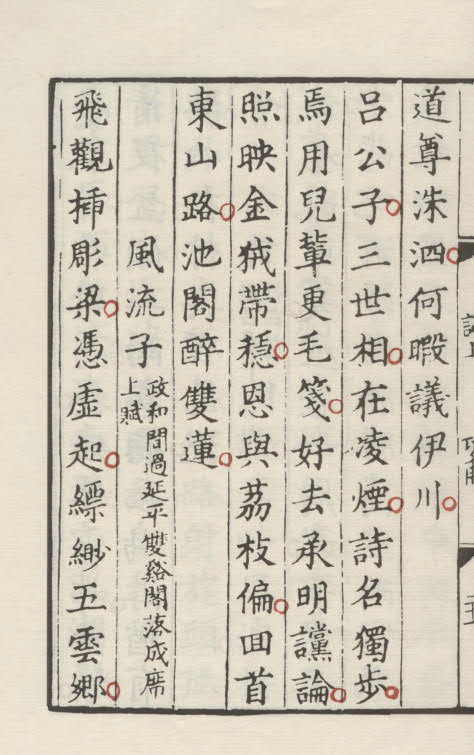 道尊洙泗何暇議伊川
呂公子三世相在凌煙詩名獨步
焉用兒輩更毛箋好去承明讜論
照映金狨帶穩恩與荔枝偏回首
東山路池閣醉雙蓮
風流子政和間過延平雙谿閣落成席上賦
飛觀揷彫梁憑虛起縹緲五雲鄉